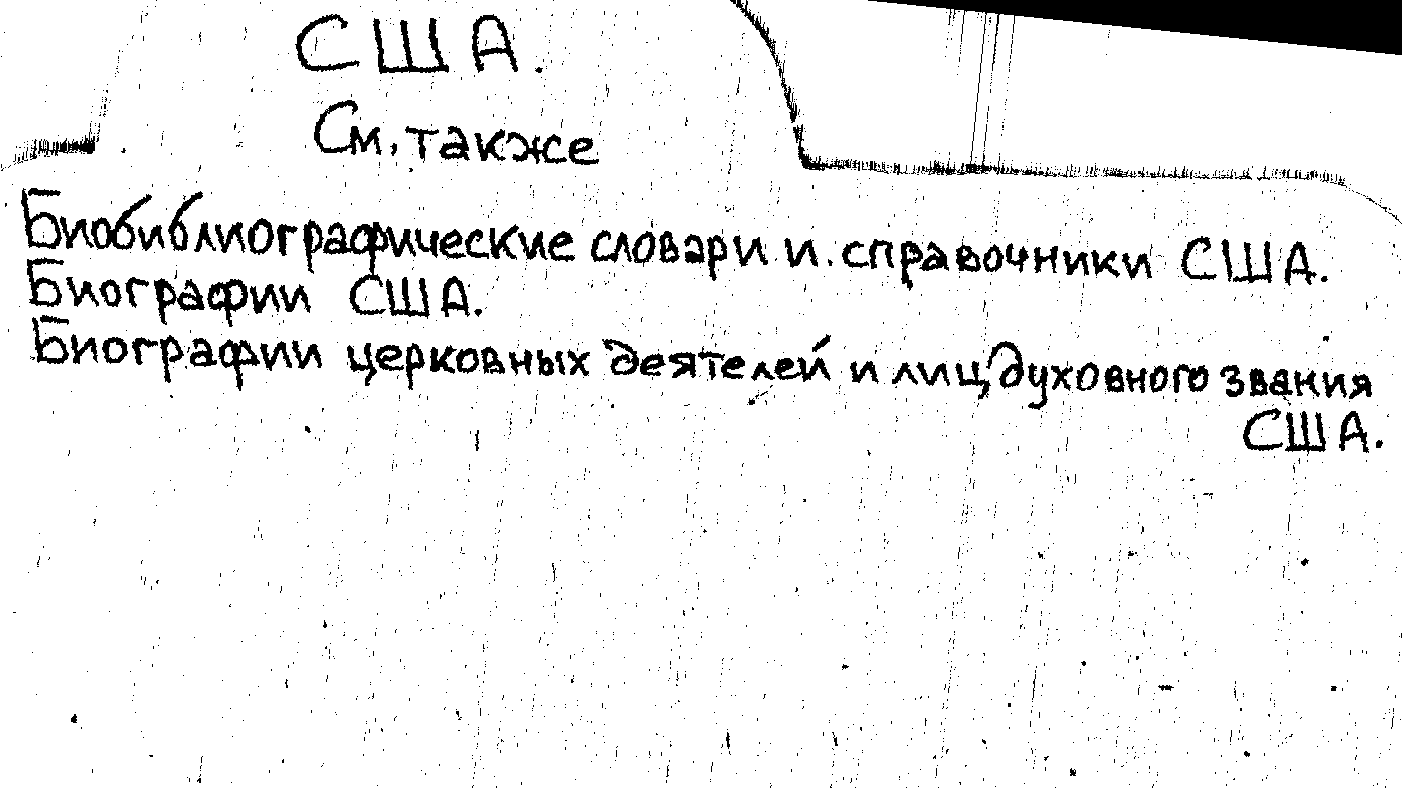 США.
См. также
Биобиблиографические словари и справочники США.
Биографии США.
Биографии церковных деятелей и лиц духовного звания
США.